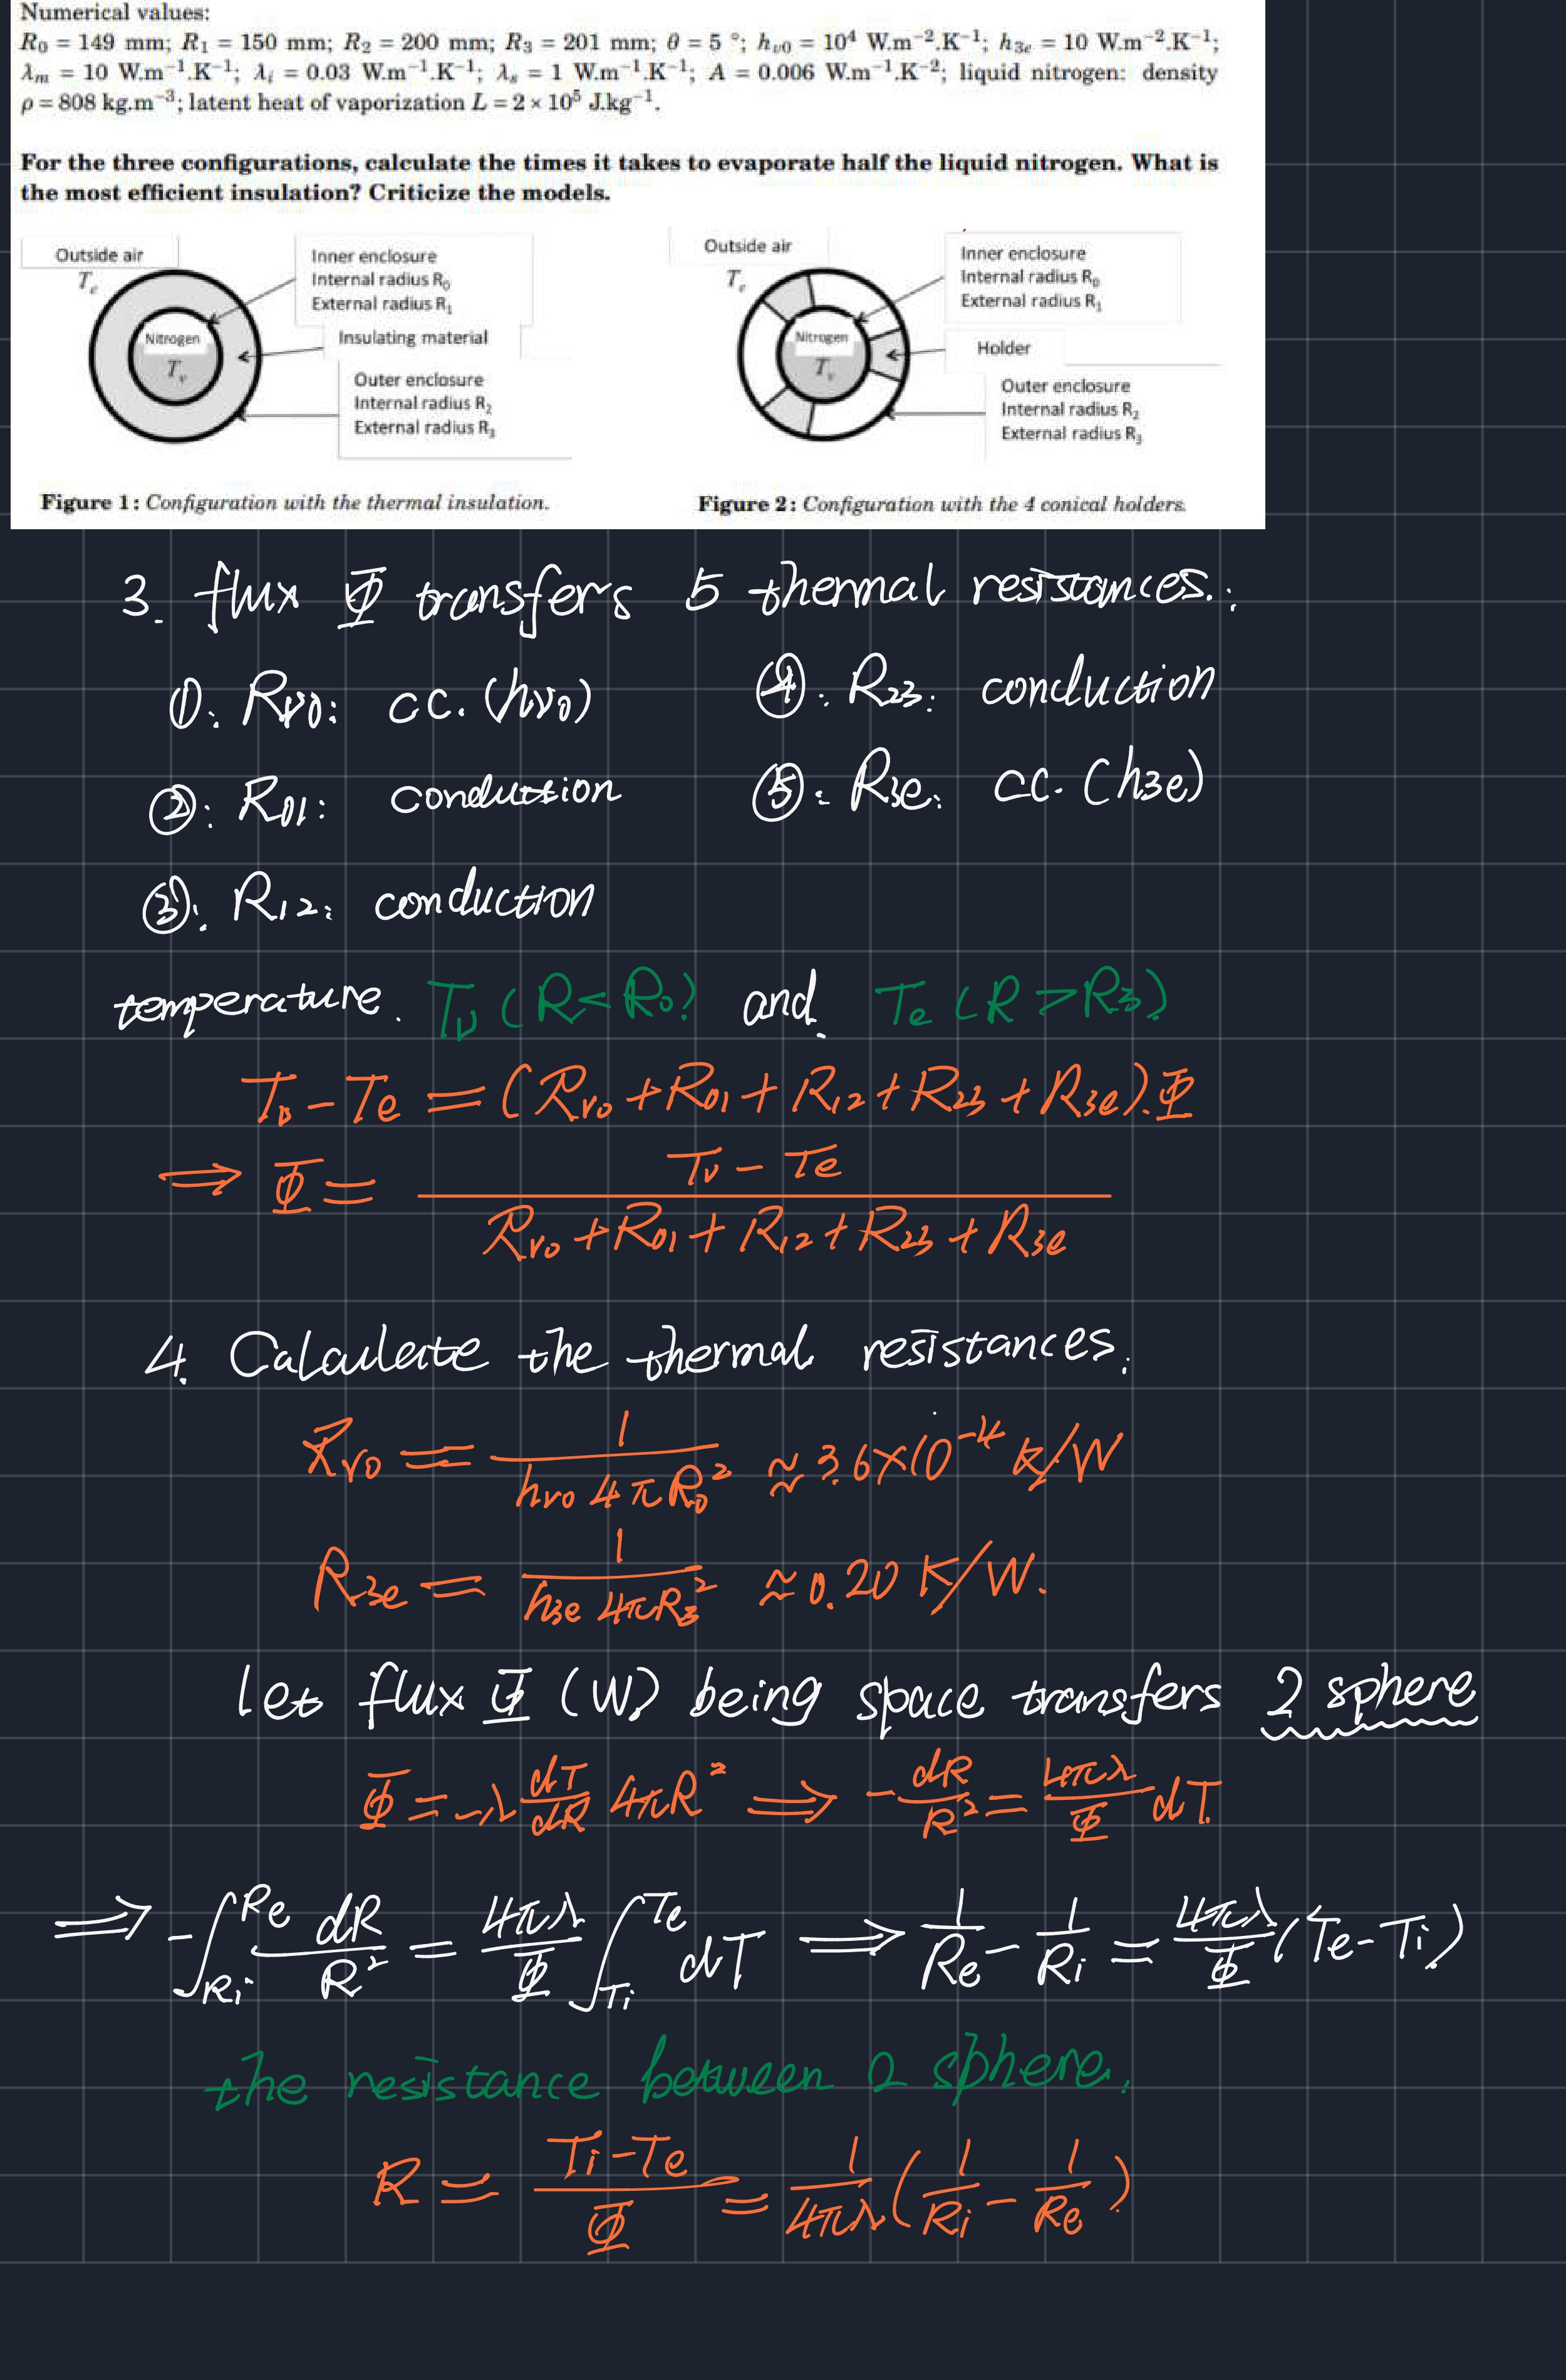 Numerical values:
R₀ = 149 mm; R₁ = 150 mm; R₂ = 200 mm; R₃ = 201 mm; θ = 5 °; hᵥ₀ = 10⁴ W.m⁻².K⁻¹; h₃ₑ = 10 W.m⁻².K⁻¹;
λₘ = 10 W.m⁻¹.K⁻¹; λᵢ = 0.03 W.m⁻¹.K⁻¹; λₛ = 1 W.m⁻¹.K⁻¹; A = 0.006 W.m⁻¹.K⁻²; liquid nitrogen: density
ρ = 808 kg.m⁻³; latent heat of vaporization L = 2 × 10⁵ J.kg⁻¹.
For the three configurations, calculate the times it takes to evaporate half the liquid nitrogen. What is
the most efficient insulation? Criticize the models.
Outside air
Tₑ
Nitrogen
Tᵥ
Inner enclosure
Internal radius R₀
External radius R₁
Insulating material
Outer enclosure
Internal radius R₂
External radius R₃
Figure 1: Configuration with the thermal insulation.
Outside air
Tₑ
Nitrogen
Tᵥ
Inner enclosure
Internal radius R₀
External radius R₁
Holder
Outer enclosure
Internal radius R₂
External radius R₃
Figure 2: Configuration with the 4 conical holders.
3. flux Φ transfers 5 thermal resistances.:
①: Rᵥ₀: cc. (hᵥ₀)
④: R₂₃: conduction
②: R₀₁: conduction
⑤: R₃ₑ: cc. (h₃ₑ)
③: R₁₂: conduction
temperature. Tᵥ (R<R₀) and Tₑ (R>R₃)
Tᵥ - Tₑ = (Rᵥ₀ + R₀₁ + R₁₂ + R₂₃ + R₃ₑ).Φ
⟹ Φ = (Tᵥ - Tₑ) / (Rᵥ₀ + R₀₁ + R₁₂ + R₂₃ + R₃ₑ)
4. Calculate the thermal resistances.
Rᵥ₀ = 1 / (hᵥ₀ 4πR₀²) ≈ 3.6×10⁻⁴ K/W
R₃ₑ = 1 / (h₃ₑ 4πR₃²) ≈ 0.20 K/W.
Let flux Φ (W) being space transfers 2 sphere
Φ = -λ dT/dR 4πR² ⟹ -dR/R² = 4πλ/Φ dT
⟹ -∫_{Ri}^{Re} dR/R² = 4πλ/Φ ∫_{Ti}^{Te} dT ⟹ 1/Re - 1/Ri = 4πλ/Φ (Te-Ti)
the resistance between 2 sphere.
R = (Ti-Te)/Φ = 1/4πλ (1/Ri - 1/Re)